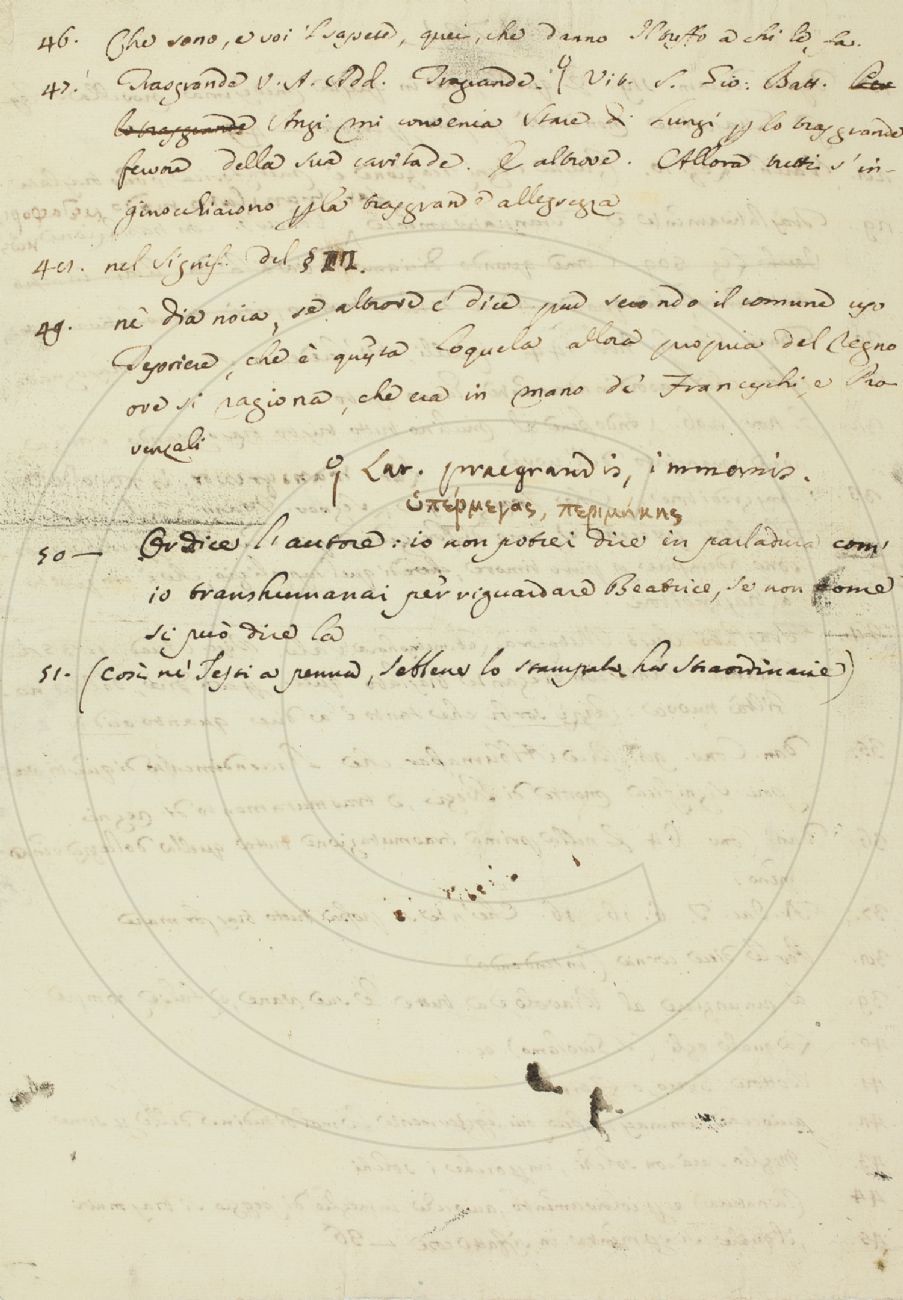 46. Che sono, e voi 'l sapete, quei, che danno Il tuffo a chi lo fa.
47. Trasgrande V. A. Add. Tragrande. § Vit. S. Gio: Batt. Per
lo trasgrande Anzi mi convenia stare di lungi p lo trasgrande
fervore della sua caritade. E altrove. Allora tutti s'in-
ginocchiarono p la trasgrande allegrezza
48. nel signif. del § III.
49. nè dia noia, se altrove e' dice pur secondo il comune uso
Jepriere, che è questa loquela allora propria del Regno
ove si ragiona, che era in mano de' Franceschi, e Pro-
venzali
§ Lat. praegrandis, immanis.
ὑπέρμεγας, περιμήκης
50 — Or dice l'autore: io non potrei dire in parladura com'
io transhumanai per riguardare Beatrice, se non come
si può dire la
51. (così ne' Testi a penna, sebbene lo stampato ha straordinarie)